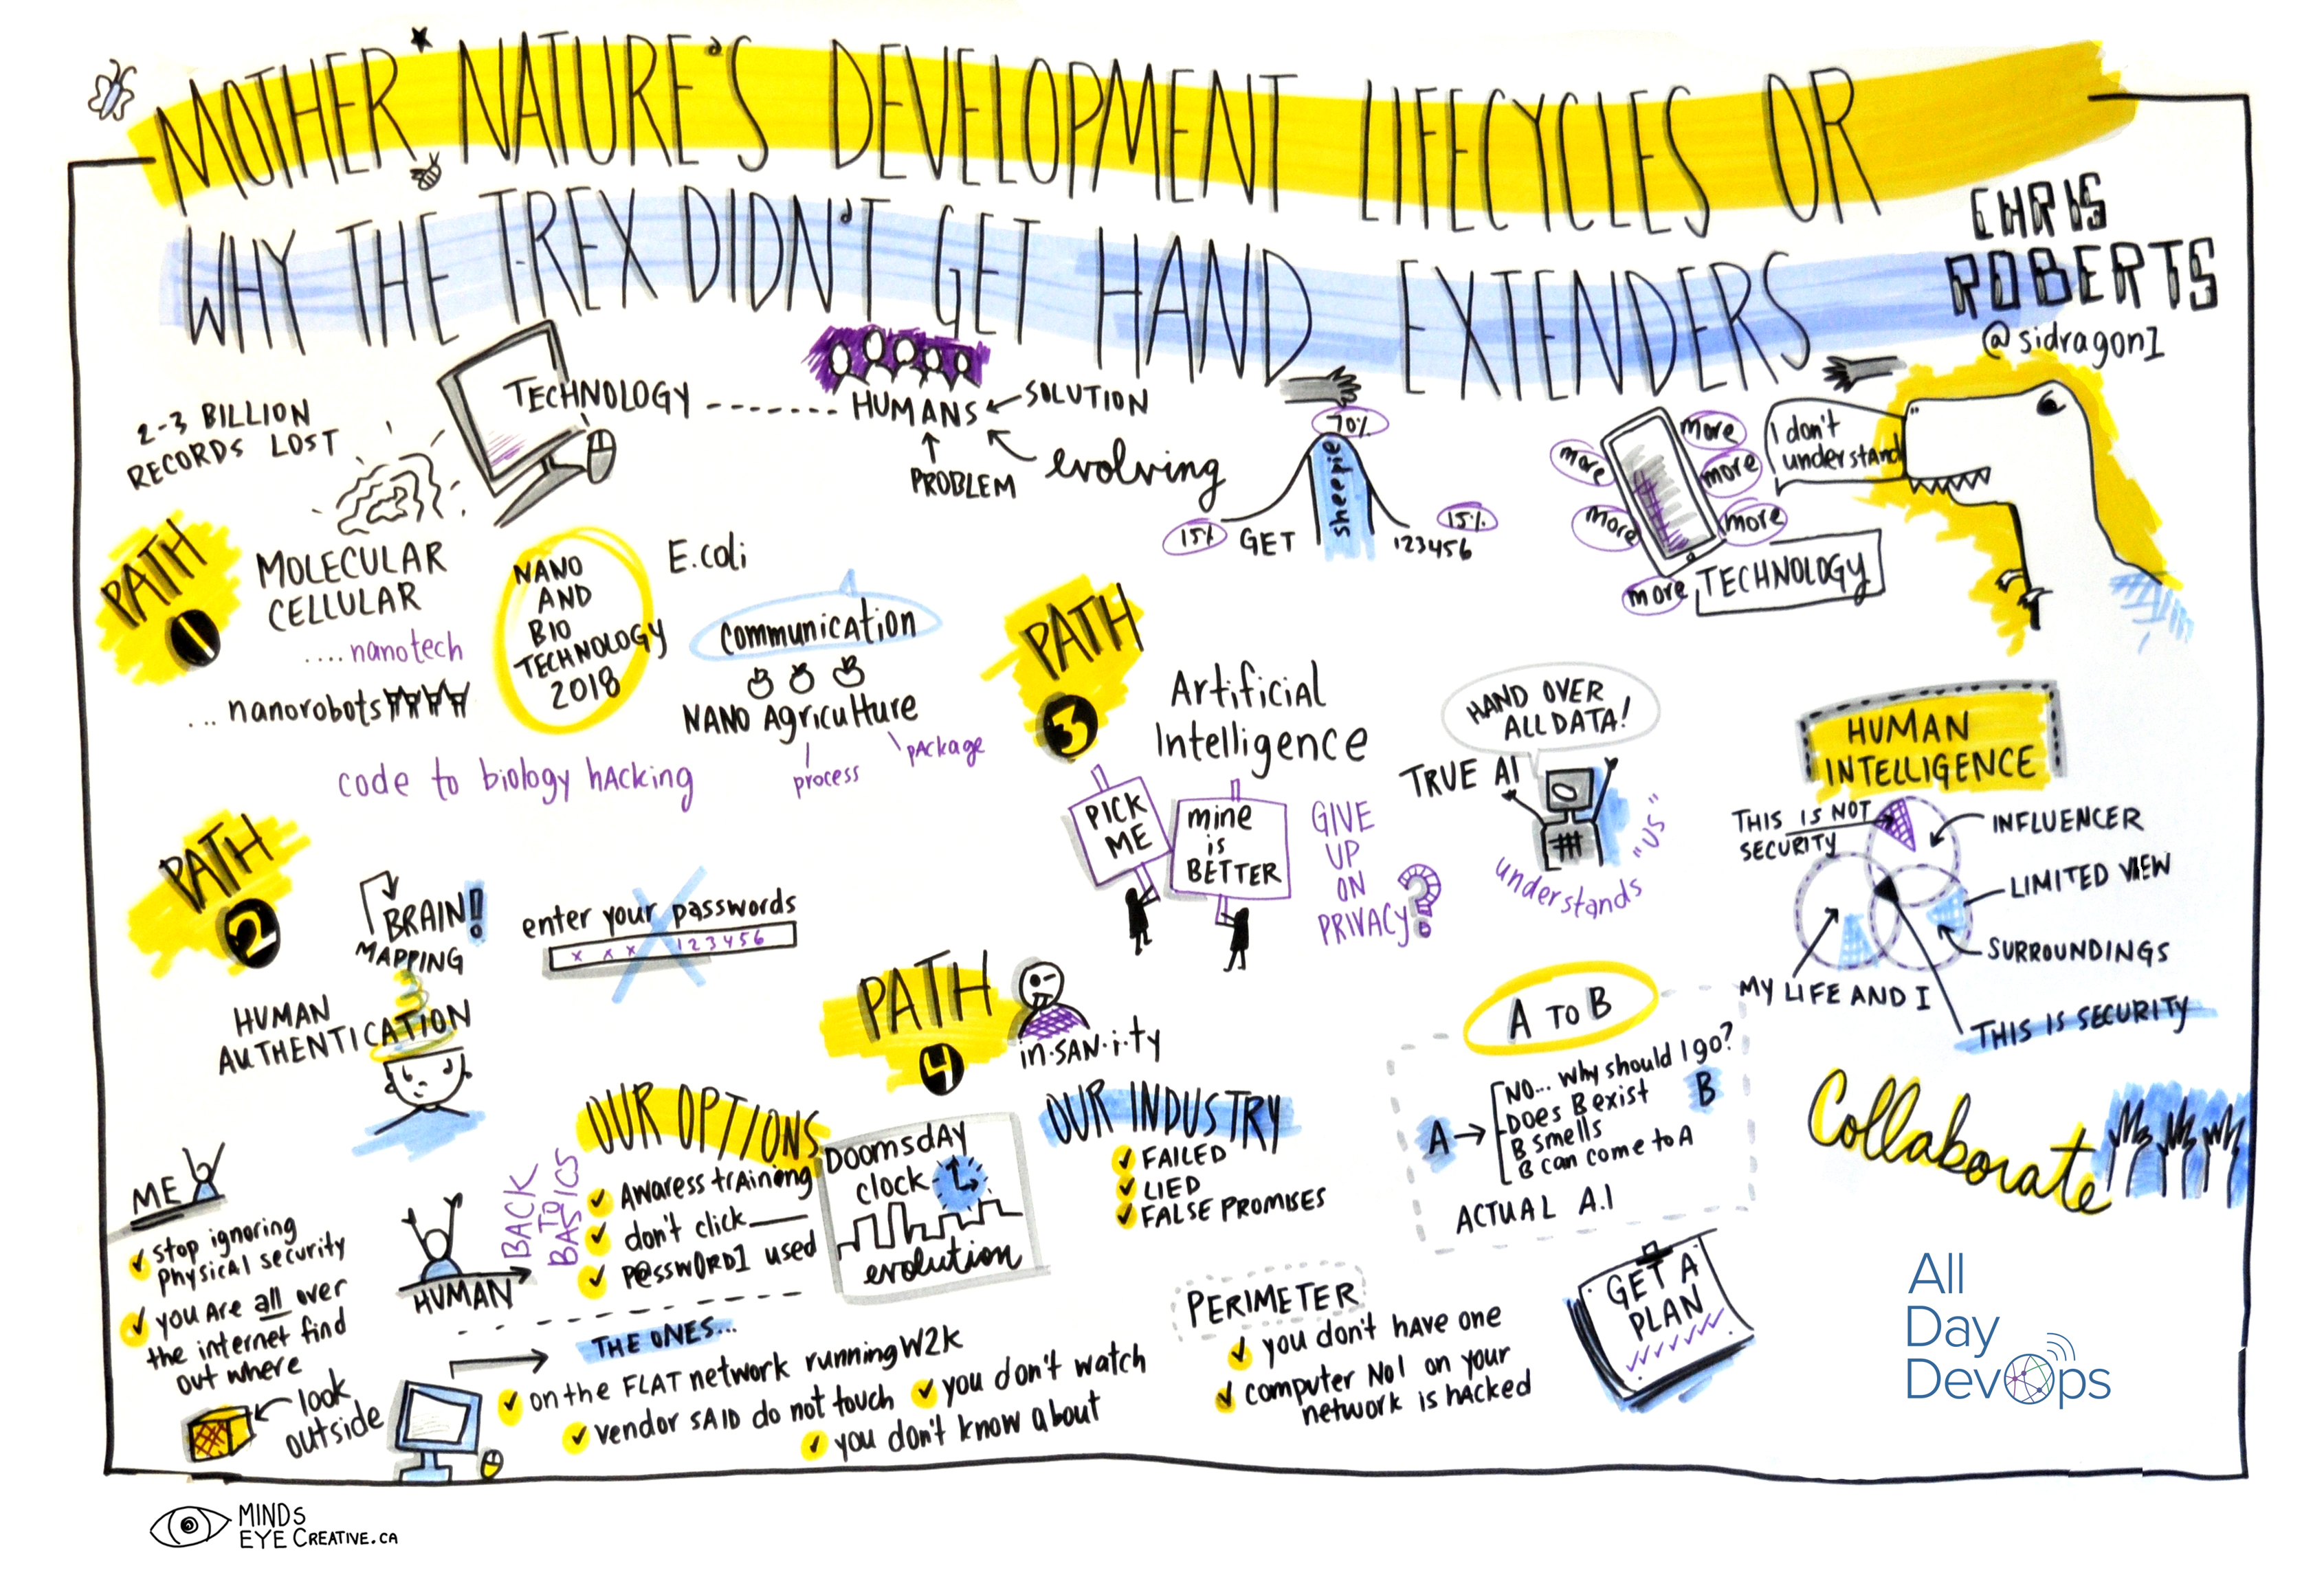 MOTHER NATURE'S DEVELOPMENT LIFECYCLES OR
WHY THE T-REX DIDN'T GET HAND EXTENDERS
CHRIS
ROBERTS
@sidragon1
2-3 BILLION
RECORDS LOST
TECHNOLOGY ------- HUMANS
SOLUTION
PROBLEM
evolving
70%
sheepie
15%
GET
15%
123456
more
more
more
more
more
more
TECHNOLOGY
I don't
understand
PATH
1
MOLECULAR
CELLULAR
.... nanotech
... nanorobots
NANO
AND
BIO
TECHNOLOGY
2018
E.coli
communication
NANO Agriculture
process
package
code to biology hacking
PATH
2
BRAIN!
MAPPING
enter your passwords
x x x 123456
HUMAN
AUTHENTICATION
PATH
3
Artificial
Intelligence
PICK
ME
mine
is
BETTER
GIVE
UP
ON
PRIVACY?
HAND OVER
ALL DATA!
TRUE AI
understands "US"
HUMAN
INTELLIGENCE
THIS IS NOT
SECURITY
INFLUENCER
LIMITED VIEW
SURROUNDINGS
MY LIFE AND I
THIS IS SECURITY
PATH
4
in·SAN·i·ty
A TO B
A
NO... why should I go?
DOES B exist
B smells
B can come to A
B
ACTUAL A.I
Collaborate
ME
stop ignoring
physical security
you are all over
the internet find
out where
look
outside
HUMAN
BACK
TO
BASICS
OUR OPTIONS
AWAress trAining
don't click
P@sswORD1 used
Doomsday
clock
evolution
OUR INDUSTRY
FAILED
LIED
FALSE PROMISES
THE ONES...
on the FLAT network running W2K
vendor SAID do not touch
you don't watch
you don't know about
PERIMETER
you don't have one
computer No1 on your
network is hacked
GET A
PLAN
All
Day
DevOps
MINDS
EYE CREATIVE.CA